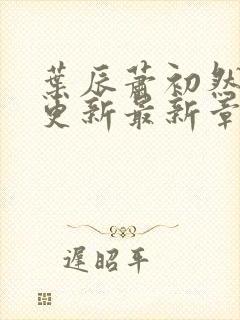 葉辰蕭初然
更新最新章
遲昭平